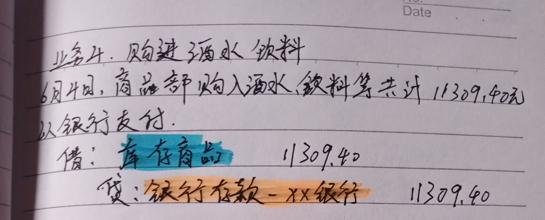 No.
Date
业务4. 购进酒水 饮料
6月4日, 商品部购入酒水、饮料等共计11309.40元
以银行支付.
借: 库存商品 11309.40
贷: 银行存款-xx银行 11309.40